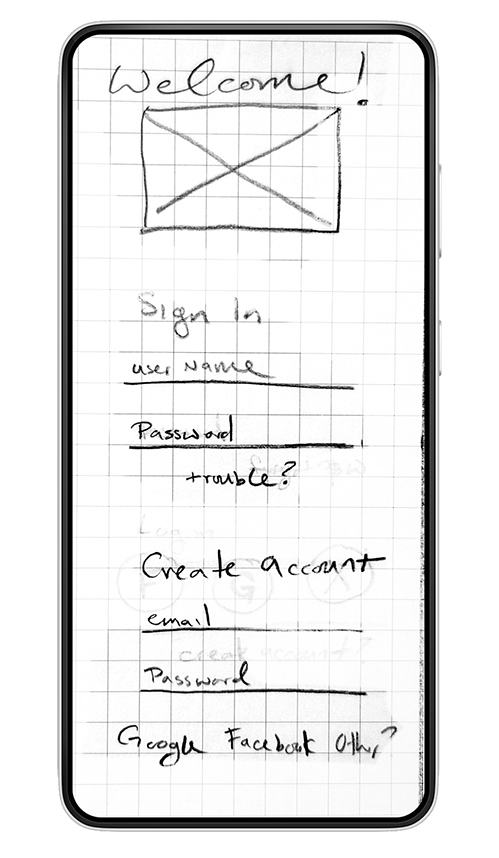 Welcome!
Sign In
user Name
Password
trouble?
Log in
Create account
email
create account?
Password
Google Facebook Other?